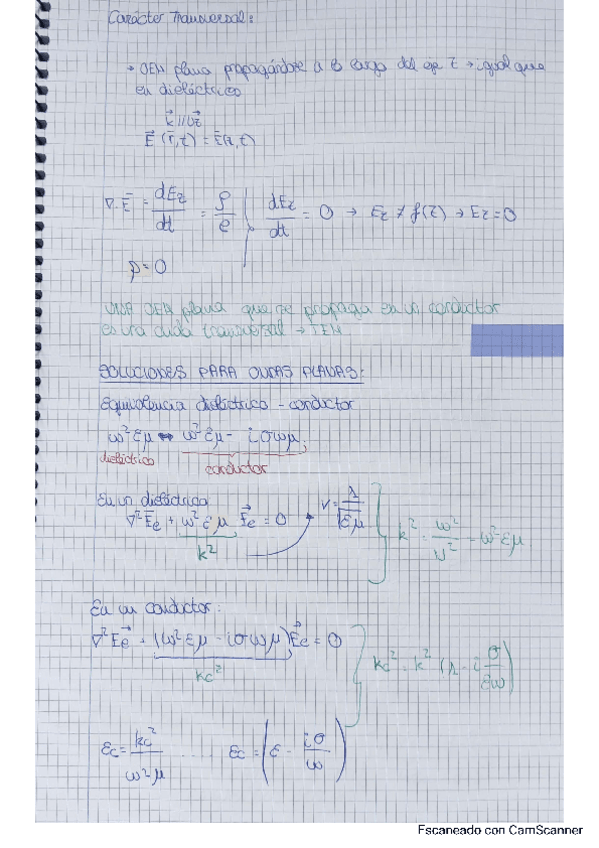 Carácter Transversal:
→ OEM plana propagándose a lo largo del eje z → igual que
en dieléctrico
k⃗ // 0z⃗
E⃗ (r⃗,t) = E⃗(z,t)
∇·E⃗ = dEz/dt = ρ/e  dEz/dt = 0 → Ez ≠ f(z) → Ez = 0
ρ = 0
UNA OEM plana que se propaga en un conductor
es una onda transversal → TEM
SOLUCIONES PARA ONDAS PLANAS:
Equivalencia dieléctrico - conductor
ω²εμ ↔ ω²εμ - iσωμ
dieléctrico conductor
En un dieléctrico
∇²E⃗e + ω²εμ E⃗e = 0  v = 1/√εμ  k² = ω²/v² = ω²εμ
k²
En un conductor:
∇²E⃗e + (ω²εμ - iσωμ)E⃗c = 0  kc² = k² (1 - i σ/εω)
kc²
εc = kc²/ω²μ ..... εc = (ε - iσ/ω)
Escaneado con CamScanner